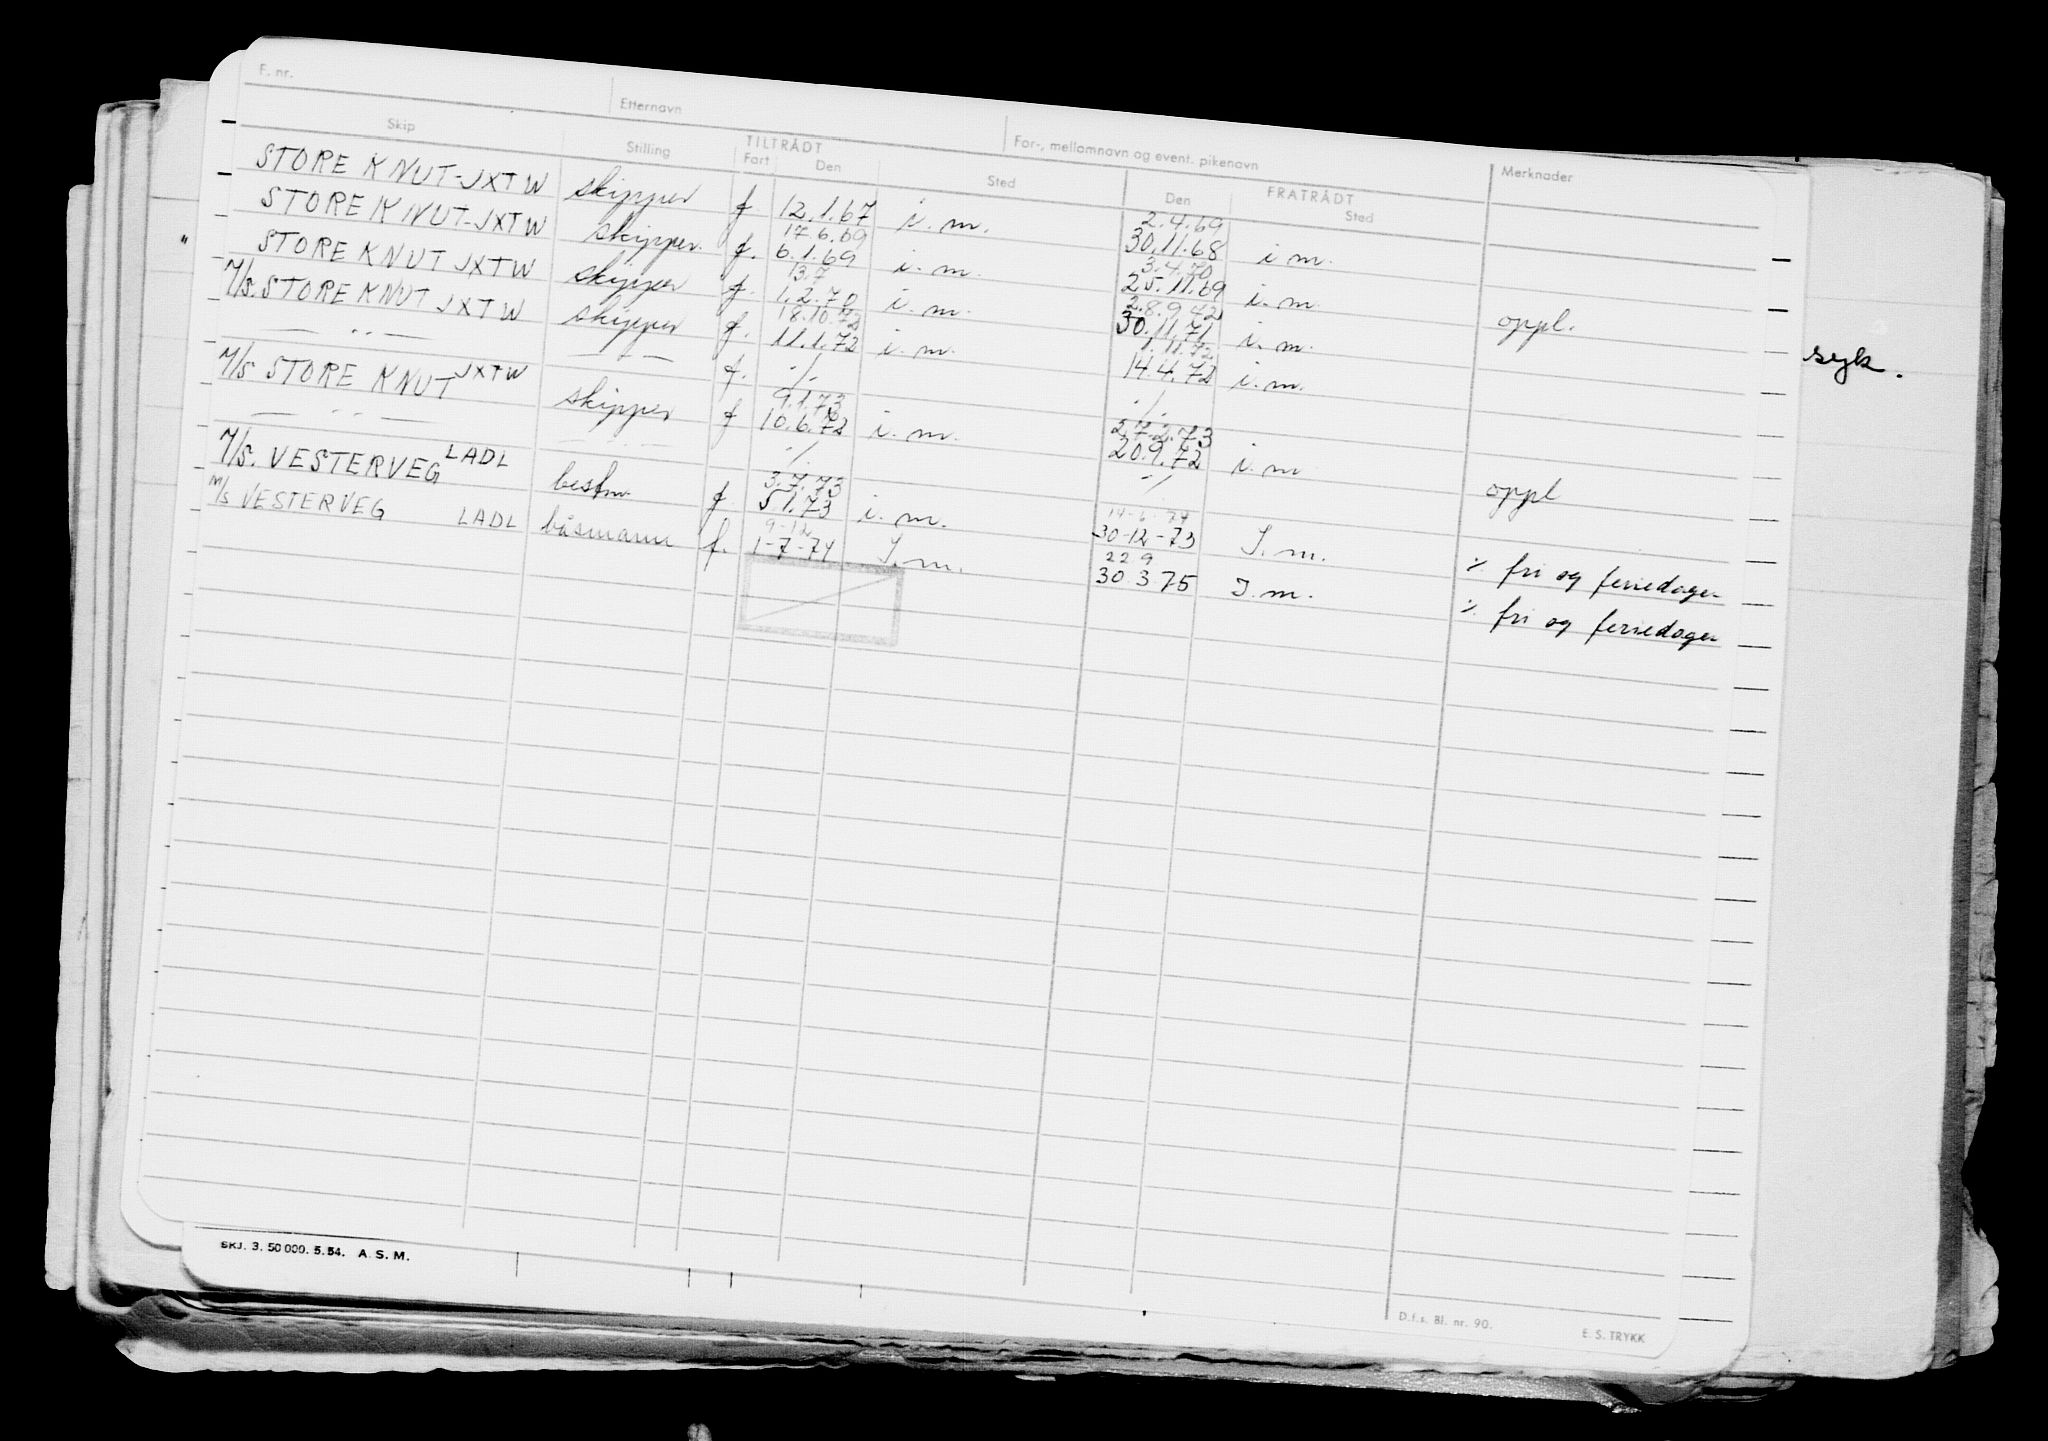 F. nr. Etternavn For-, mellomnavn og event. pikenavn
Skip Stilling TILTRÅDT Fart Den Sted FRATRÅDT Den Sted Merknader
STORE KNUT-JXTW skipper f. 12.1.67 i. m. 2.4.69 30.11.68 i m.
STORE KNUT-JXTW skipper. f. 17.6.69 6.1.69 i. m. 3.4.70 25.11.69 i. m. oppl.
" STORE KNUT JXTW skipper f. 13.7 1.2.70 i. m. 30.11.71 i. m.
M/S. STORE KNUT JXTW skipper f. 18.10.72 11.1.72 i. m. 1.11.72 14.4.72 i. m.
— " — — " — f. ./. ./.
M/S STORE KNUT JXTW skipper f 9.1.73 10.6.72 i. m. 20.9.72 i. m
— " — — " — ./. ./. oppl
M/S. VESTERVEG LADL bestm. f. 3.7.73 5.1.73 i. m. 14-6-74 30-12-73 I. m. ٪ fri og feriedager
M/S VESTERVEG LADL båsmann f. 9-12 1-7-74 I. m. 22 9 30.3.75 I. m. ٪ fri og feriedager
syk.
SKJ. 3. 50 000. 5.54. A. S. M.
D.f.s. Bl. nr. 90. E. S. TRYKK